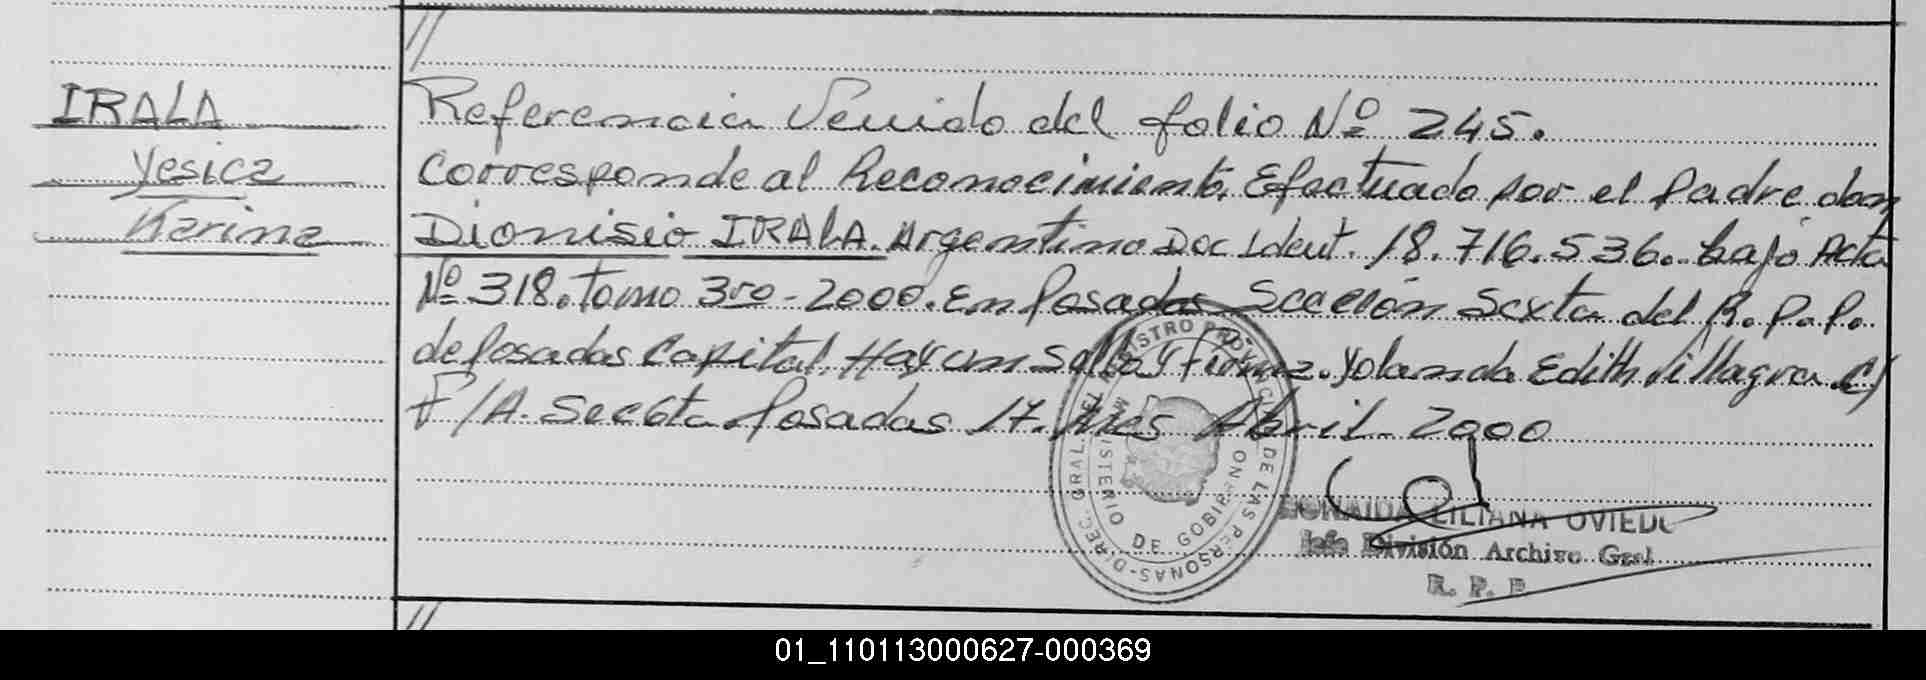 IRALA
Yesica
Karina
//
Referencia Venido del folio Nº 245.
Corresponde al Reconocimiento. Efectuado por el Padre don
Dionisio IRALA. Argentino Doc Ident. 18.716.536. bajo Acta
Nº 318. tomo 3ro - 2000. En Posadas Sección Sexta del R. P. P.
de Posadas Capital. Hay un Sello y firma. Yolanda Edith Villagra. C/
F/A. Sec 6ta Posadas 17. Mes Abril - 2000
REGISTRO PROVINCIAL DE LAS PERSONAS - DIREC. GRAL.
MINISTERIO DE GOBIERNO
LILIANA OVIEDO
Jefe División Archivo Gral
R. P. P.
//
01_110113000627-000369